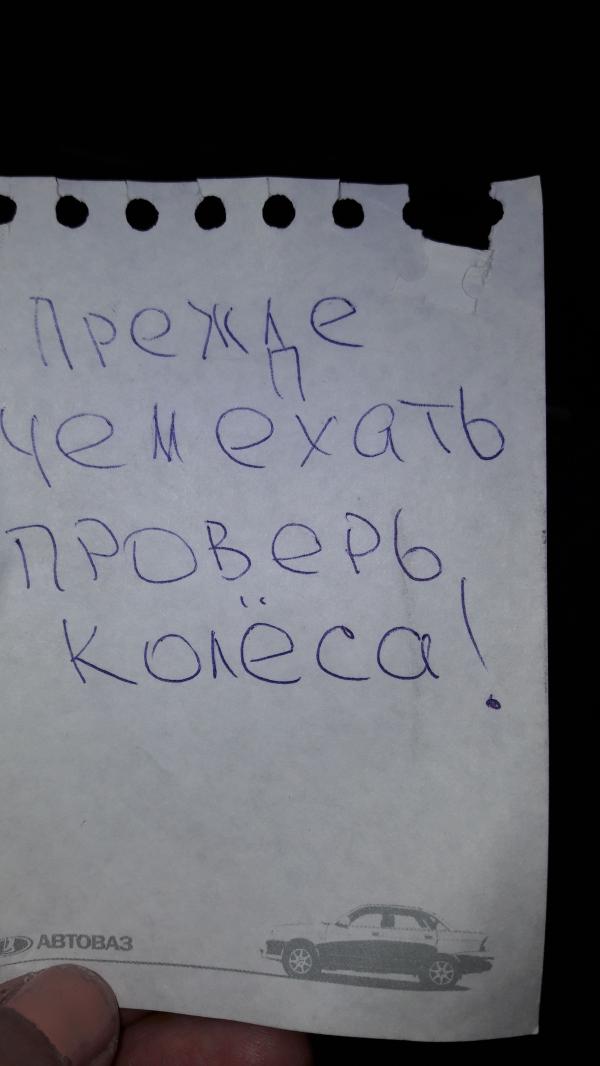 прежде
чем ехать
проверь
колёса!
АВТОВАЗ